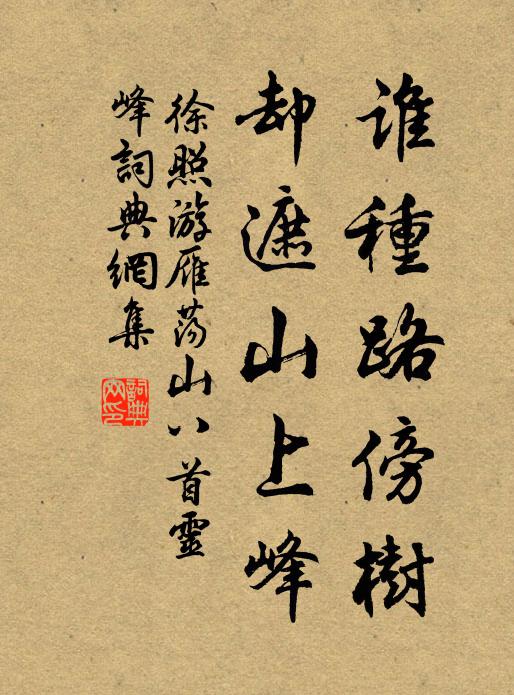 谁種路傍樹
却遮山上峰
徐照游雁荡山八首靈
峰詞典網集
詞典